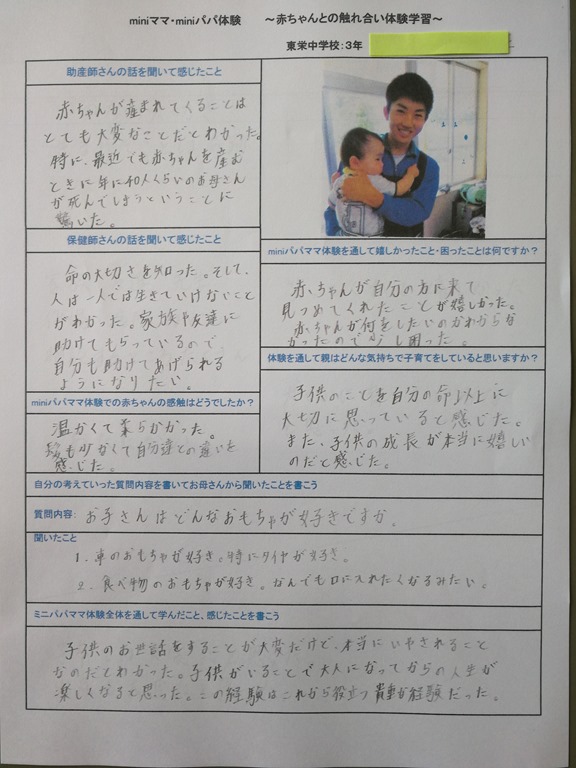 miniママ・miniパパ体験　～赤ちゃんとの触れ合い体験学習～
東栄中学校：3年
助産師さんの話を聞いて感じたこと
赤ちゃんが産まれてくることは
とても大変なことだとわかった。
特に、最近でも赤ちゃんを産む
ときに年に40人くらいのお母さん
が死んでしまうということに
驚いた。
保健師さんの話を聞いて感じたこと
命の大切さを知った。そして、
人は一人では生きていけないこと
がわかった。家族や友達に
助けてもらっているので
自分も助けてあげられる
ようになりたい。
miniパパママ体験での赤ちゃんの感触はどうでしたか？
温かくて柔らかかった。
髪も少なくて自分達との違いを
感じた。
miniパパママ体験を通して嬉しかったこと・困ったことは何ですか？
赤ちゃんが自分の方に来て
見つめてくれたことが嬉しかった。
赤ちゃんが何をしたいのかわからな
かったので少し困った。
体験を通して親はどんな気持ちで子育てをしていると思いますか？
子供のことを自分の命以上に
大切に思っていると感じた。
また、子供の成長が本当に嬉しい
のだと感じた。
自分の考えていった質問内容を書いてお母さんから聞いたことを書こう
質問内容： お子さんはどんなおもちゃが好きですか。
聞いたこと
1. 車のおもちゃが好き。特にタイヤが好き。
2. 食べ物のおもちゃが好き。なんでも口に入れたくなるみたい。
ミニパパママ体験全体を通して学んだこと、感じたことを書こう
子供のお世話をすることが大変だけど、本当にいやされること
なのだとわかった。子供がいることで大人になってからの人生が
楽しくなると思った。この経験はこれから役立つ貴重な経験だった。